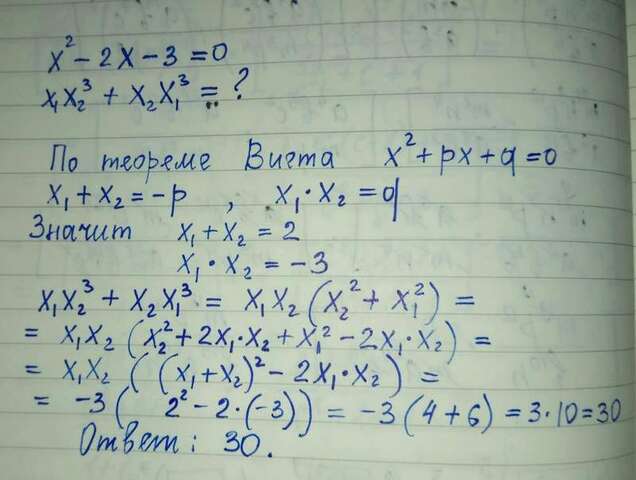 x² - 2x - 3 = 0
x₁x₂³ + x₂x₁³ = ?
По теореме Виета x² + px + q = 0
x₁ + x₂ = -p , x₁ · x₂ = q
Значит x₁ + x₂ = 2
x₁ · x₂ = -3
x₁x₂³ + x₂x₁³ = x₁x₂ (x₂² + x₁²) =
= x₁x₂ (x₂² + 2x₁·x₂ + x₁² - 2x₁·x₂) =
= x₁x₂ ((x₁+x₂)² - 2x₁·x₂) =
= -3 ( 2² - 2·(-3)) = -3 (4 + 6) = 3·10 = 30
Ответ: 30.